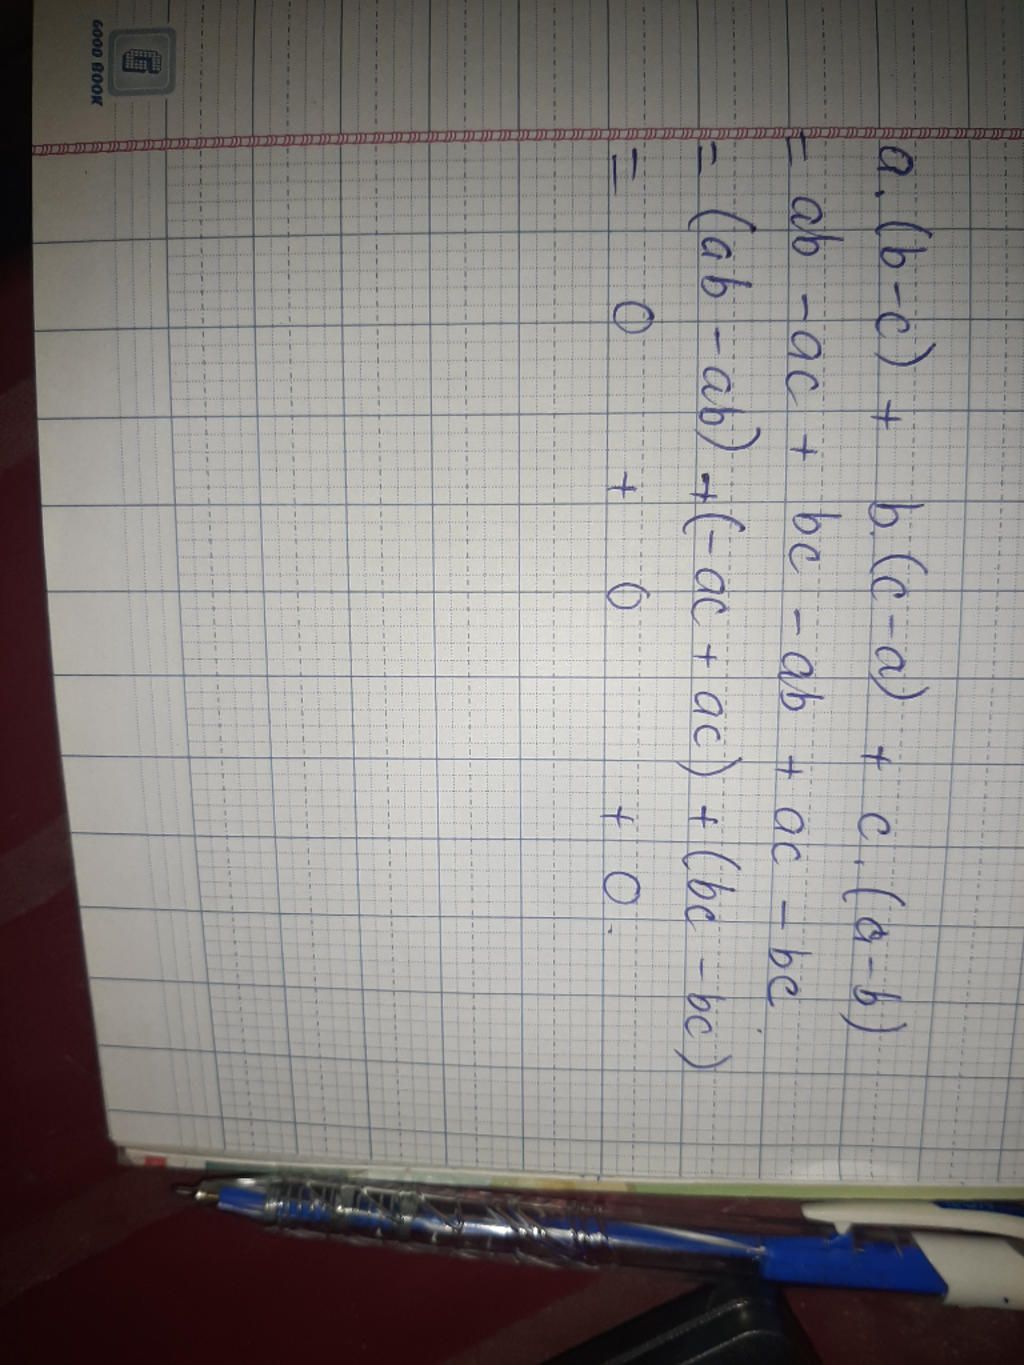 a.(b-c) + b.(c-a) + c.(a-b)
= ab - ac + bc - ab + ac - bc
= (ab - ab) + (-ac + ac) + (bc - bc)
= 0 + 0 + 0.
GOOD BOOK